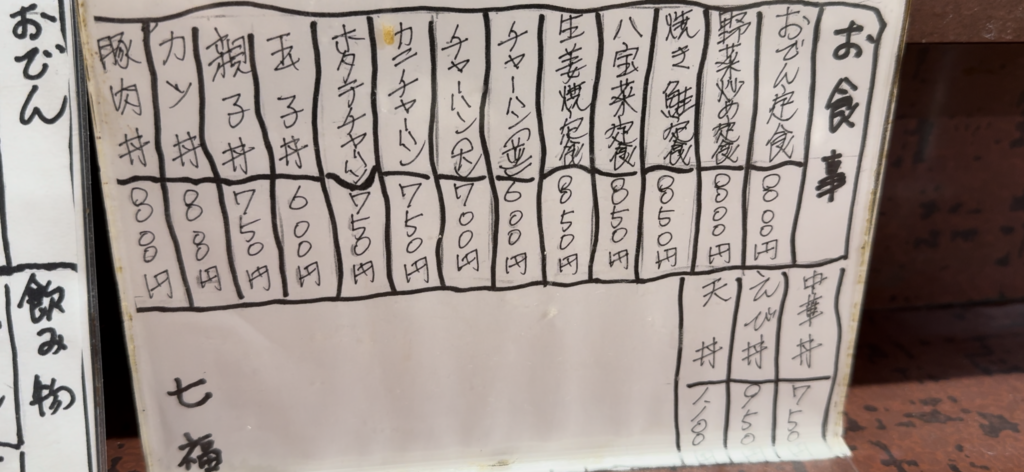 お食事
おでん定食 800円
野菜炒め定食 800円
焼き鮭定食 850円
八宝菜定食 850円
生姜焼定食 850円
チャーハン(並) 600円
チャーハン(大) 700円
カニチャーハン 750円
ホタテチャーハン 750円
玉子丼 600円
親子丼 750円
カツ丼 800円
豚肉丼 800円
中華丼 750
えび丼 950
天丼
七福
おでん
飲み物